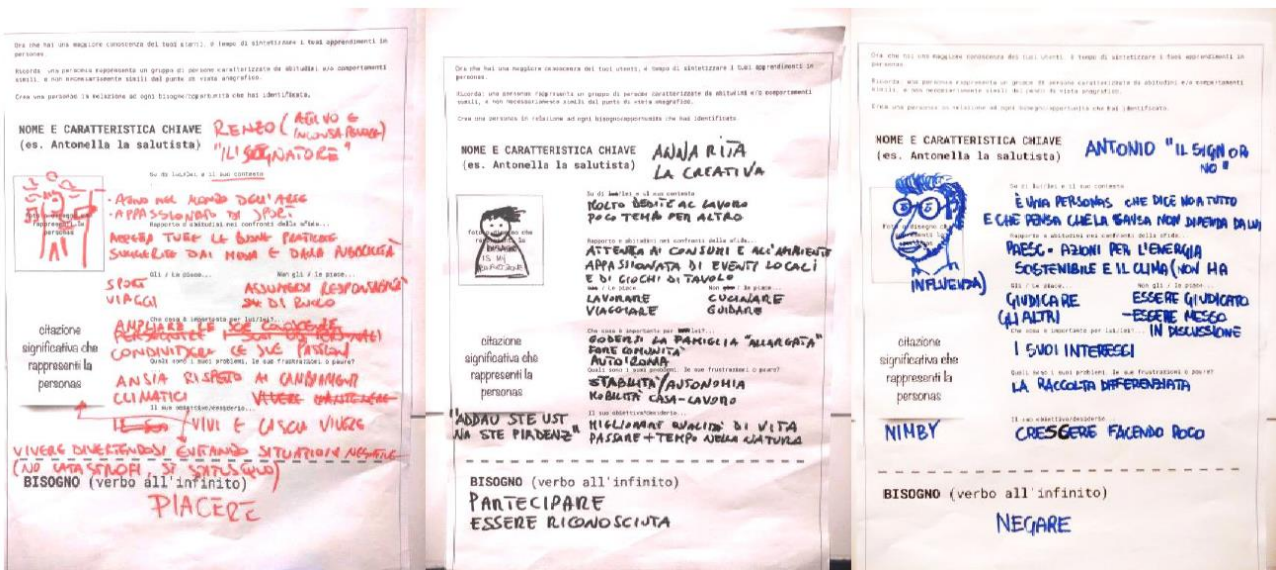 Ora che hai una maggiore conoscenza dei tuoi utenti, è tempo di sintetizzare i tuoi apprendimenti in
personas.
Ricorda: una personas rappresenta un gruppo di persone caratterizzate da abitudini e/o comportamenti
simili, e non necessariamente simili dal punto di vista anagrafico.
Crea una personas in relazione ad ogni bisogno/opportunità che hai identificato.
NOME E CARATTERISTICA CHIAVE
(es. Antonella la salutista)
RENZO (ATTIVO E
"IL SOGNATORE"
Su di lui/lei e il suo contesto
- ATTIVO NEL MONDO DELL'ARTE
- APPASSIONATO DI SPORT
Rapporto e abitudini nei confronti della sfida...
ADOTTA TUTTE LE BUONE PRATICHE
SUGGERITE DALLA MODA E DALLA PUBBLICITÀ
Gli / Le piace... Non gli / le piace...
SPORT ASSUMERSI RESPONSABILITÀ
VIAGGI DI RUOLO
Che cosa è importante per lui/lei?...
AMPLIARE LE SUE CONOSCENZE
CONDIVIDERE LE SUE PASSIONI
Quali sono i suoi problemi, le sue frustrazioni o paure?
ANSIA RISPETTO AI CAMBIAMENTI
CLIMATICI
citazione
significativa che
rappresenti la
personas
Il suo obiettivo/desiderio...
VIVI E LASCIA VIVERE
VIVERE DIVERTENDOSI EVITANDO SITUATIONI NEGATIVE
(NO CATASTROFI, SI STATUS QUO)
BISOGNO (verbo all'infinito)
PIACERE
Ora che hai una maggiore conoscenza dei tuoi utenti, è tempo di sintetizzare i tuoi apprendimenti in
personas.
Ricorda: una personas rappresenta un gruppo di persone caratterizzate da abitudini e/o comportamenti
simili, e non necessariamente simili dal punto di vista anagrafico.
Crea una personas in relazione ad ogni bisogno/opportunità che hai identificato.
NOME E CARATTERISTICA CHIAVE
(es. Antonella la salutista)
ANNA RITA
LA CREATIVA
Su di lui/lei e il suo contesto
MOLTO DEDITE AL LAVORO
POCO TEMPO PER ALTRO
Rapporto e abitudini nei confronti della sfida...
ATTENTA AI CONSUMI E ALL'AMBIENTE
APPASSIONATA DI EVENTI LOCALI
E DI GIOCHI DI TAVOLO
Gli / Le piace... Non gli / le piace...
LAVORARE CUCINARE
VIAGGIARE GUIDARE
Che cosa è importante per lui/lei?...
GODERSI LA FAMIGLIA "ALLARGATA"
FARE COMUNITÀ
AUTOIRONIA
Quali sono i suoi problemi, le sue frustrazioni o paure?
STABILITÀ/AUTONOMIA
MOBILITÀ CASA-LAVORO
citazione
significativa che
rappresenti la
personas
"ADDAU STE UST
NA STE PIADENZ"
Il suo obiettivo/desiderio...
MIGLIORARE QUALITÀ DI VITA
PASSARE + TEMPO NELLA NATURA
BISOGNO (verbo all'infinito)
PARTECIPARE
ESSERE RICONOSCIUTA
Ora che hai una maggiore conoscenza dei tuoi utenti, è tempo di sintetizzare i tuoi apprendimenti in
personas
Ricorda: una personas rappresenta un gruppo di persone caratterizzate da abitudini e/o comportamenti
simili, e non necessariamente simili dal punto di vista anagrafico.
Crea una personas in relazione ad ogni bisogno/opportunità che hai identificato.
NOME E CARATTERISTICA CHIAVE
(es. Antonella la salutista)
ANTONIO "IL SIGNOR
NO"
Su di lui/lei e il suo contesto
È UNA PERSONAS CHE DICE NO A TUTTO
E CHE PENSA CHE LA CAUSA NON DIPENDA DA LUI
Rapporto e abitudini nei confronti della sfida...
PAESC - AZIONI PER L'ENERGIA
SOSTENIBILE E IL CLIMA (NON HA
INFLUENZA)
Gli / Le piace... Non gli / le piace...
GIUDICARE ESSERE GIUDICATO
GLI ALTRI - ESSERE MESSO
IN DISCUSSIONE
Che cosa è importante per lui/lei?...
I SUOI INTERESSI
Quali sono i suoi problemi, le sue frustrazioni o paure?
LA RACCOLTA DIFFERENZIATA
citazione
significativa che
rappresenti la
personas
NIMBY
Il suo obiettivo/desiderio...
CRESCERE FACENDO POCO
BISOGNO (verbo all'infinito)
NEGARE